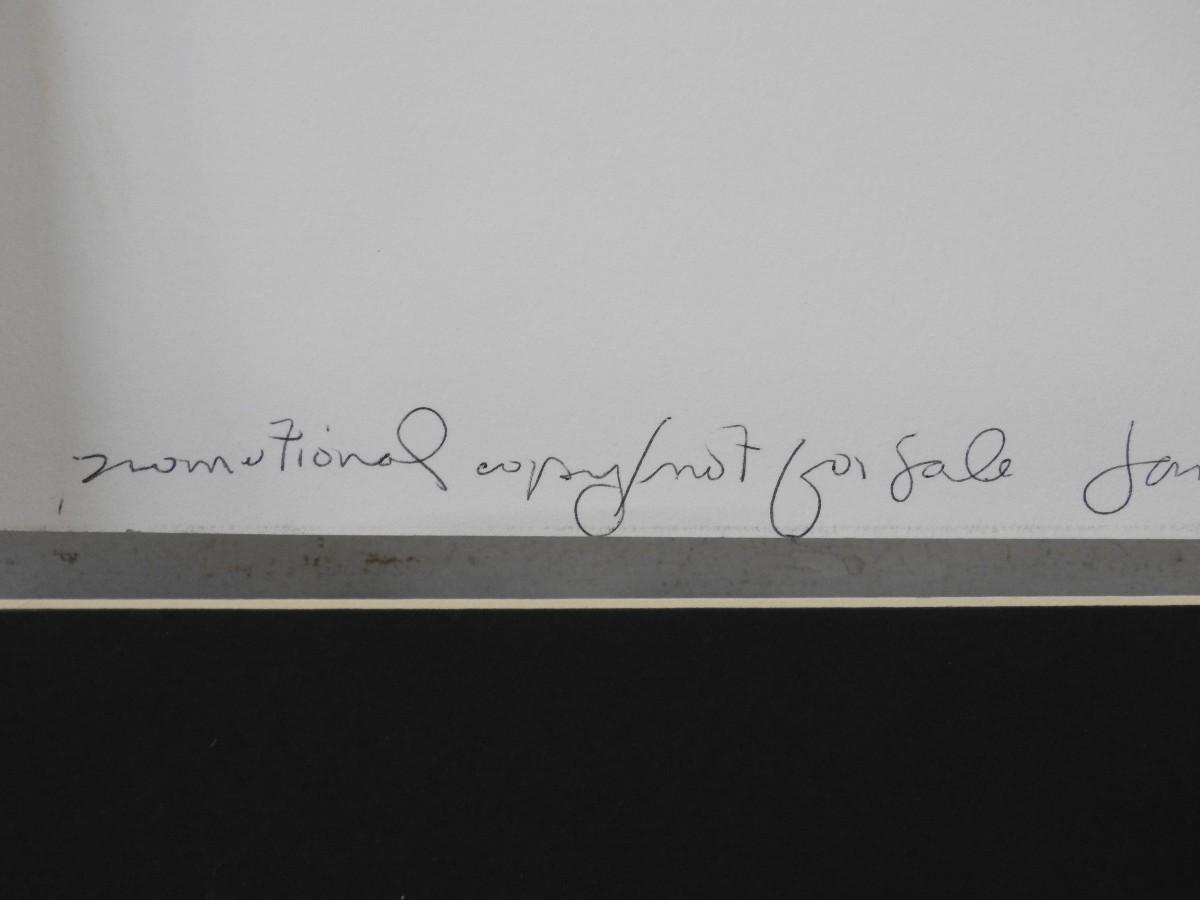 promotional copy/not for sale